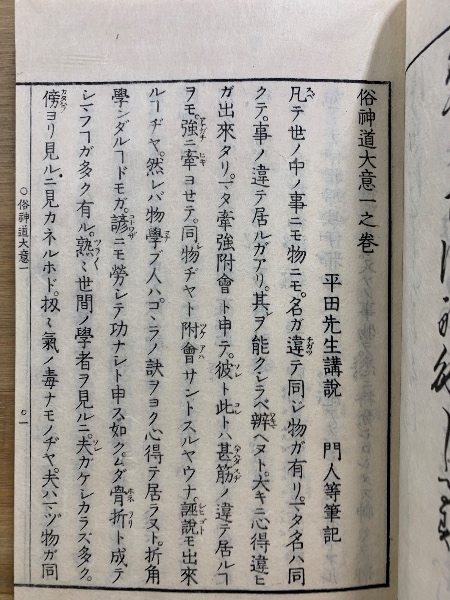 俗神道大意一之巻
平田先生講説 門人等筆記
凡テ世ノ中ノ事ニモ物ニモ。名ガ違テ同ジ物ガ有リ。マタ名ハ同
クテ。事ノ違テ居ルガアリ。其ヲ能クシラベ辨ヘヌト。大キニ心得違ヒ
ガ出來タリ。マタ牽強附會ト申テ。彼ト此トハ甚筋ノ違テ居ルヿ
ヲモ。強ニ牽ヨセテ。同物ヂヤト附會サントスルヤウナ。誣説モ出來
ルヿヂヤ。然レバ物學ブ人ハ。コヽラノ訣ヲヨク心得テ居ラヌト。折角
學ンダルヿドモガ。諺ニモ勞シテ功ナシト申ス如ク。ムダ骨折ト成テ
シマフヿガ多ク有ル。熟〻世間ノ學者ヲ見ルニ。夫ガケシカラズ多ク。
傍ヨリ見ルニ見カネルホド。扨〻氣ノ毒ナモノヂヤ。夫ハマヅ物ガ同
○俗神道大意一
○一